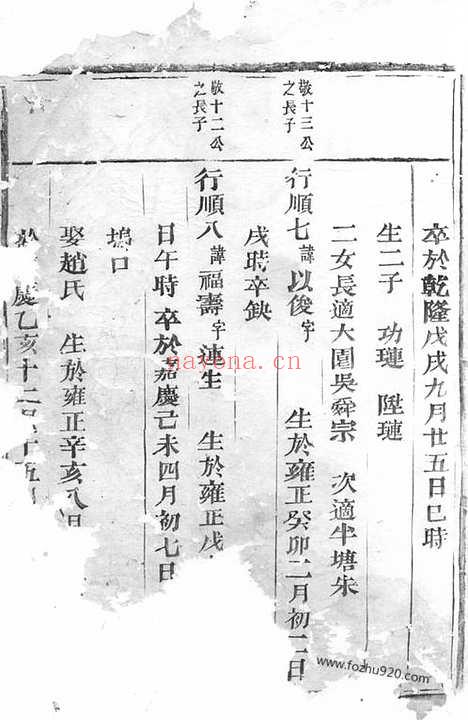 卒於乾隆戊戌九月廿五日巳時
生二子 功璉 陞璉
二女長適大園吳舜宗 次適半塘朱
敬十三公之長子
行順七 諱以俊 字 生於雍正癸卯二月初二日
戌時卒缺
敬十二公之長子
行順八 諱福壽 字蓮生 生於雍正戊
日午時 卒於嘉慶己未四月初七日
塢口
娶趙氏 生於雍正辛亥八月
慶乙亥十二月十五
nayona.cn
www.fozhu920.com